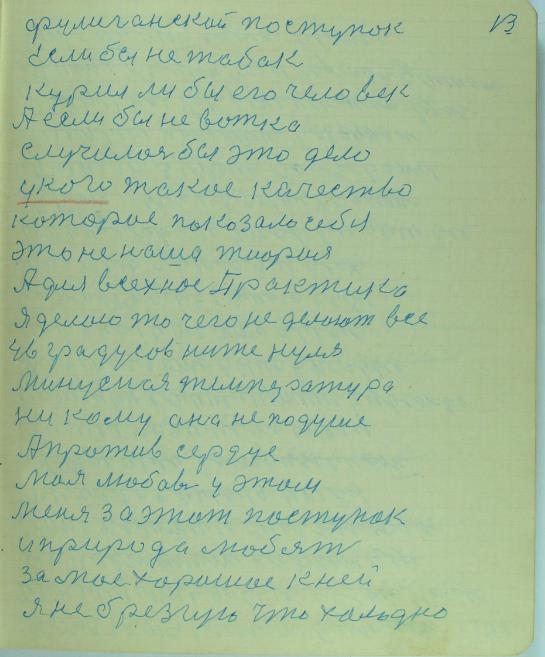 13
фулиганской поступок
Если бы не табак
курил ли бы его человек
А если бы не вотка
случилоя бы это дело
укого такое качество
которое покозало себя
это не наша тиория
А для всех нос Практика
я делою то чего не делоют все
46 градусов ниже нуля
минусная температура
ни кому она не подушие
А против сердце
моя любовь у этом
меня за этот поступок
и природа любят
за мое хорошое к ней
я не брезгую что холодно